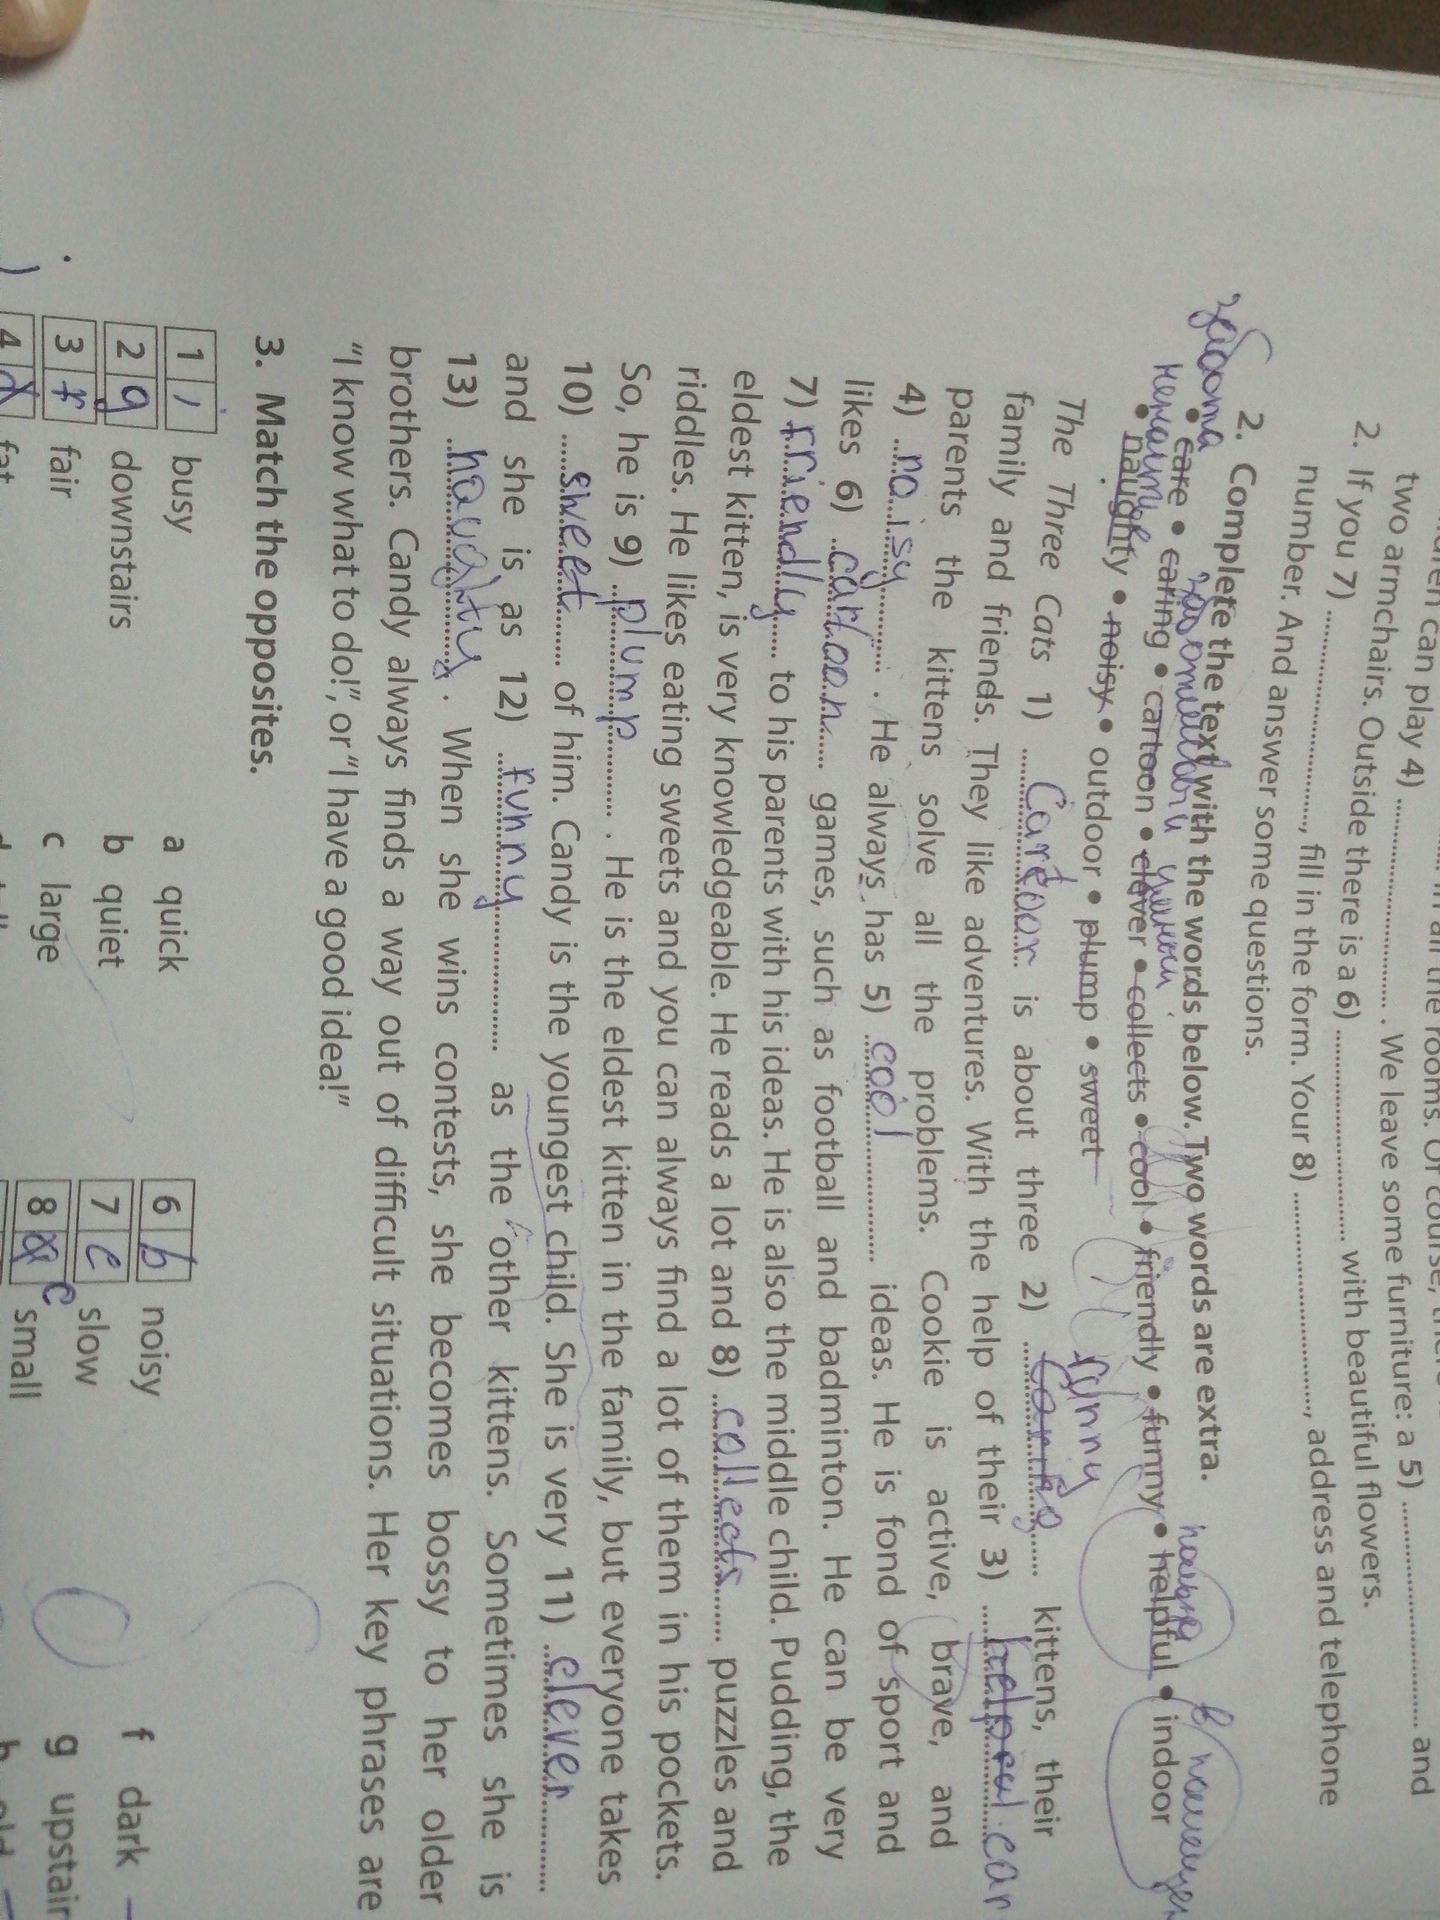 two armchairs. Outside there is a 6) .................... with beautiful flowers.
2. If you 7) ...................., fill in the form. Your 8) ...................., address and telephone
number. And answer some questions.
2. Complete the text with the words below. Two words are extra.
забота заботливый умный
• care • caring • cartoon • clever • collects • cool • friendly • funny • helpful • indoor
• naughty • noisy • outdoor • plump • sweet
funny
The Three Cats 1) cartoon is about three 2) caring kittens, their
family and friends. They like adventures. With the help of their 3) helpful car
parents the kittens solve all the problems. Cookie is active, brave, and
4) noisy . He always has 5) cool ideas. He is fond of sport and
likes 6) cartoon games, such as football and badminton. He can be very
7) friendly to his parents with his ideas. He is also the middle child. Pudding, the
eldest kitten, is very knowledgeable. He reads a lot and 8) collects puzzles and
riddles. He likes eating sweets and you can always find a lot of them in his pockets.
So, he is 9) plump . He is the eldest kitten in the family, but everyone takes
10) sweet of him. Candy is the youngest child. She is very 11) clever
and she is as 12) funny as the other kittens. Sometimes she is
13) naughty . When she wins contests, she becomes bossy to her older
brothers. Candy always finds a way out of difficult situations. Her key phrases are
"I know what to do!", or "I have a good idea!"
3. Match the opposites.
1 i busy a quick 6 b noisy f dark
2 g downstairs b quiet 7 e slow g upstair
3 f fair c large 8 c small
4 d fat